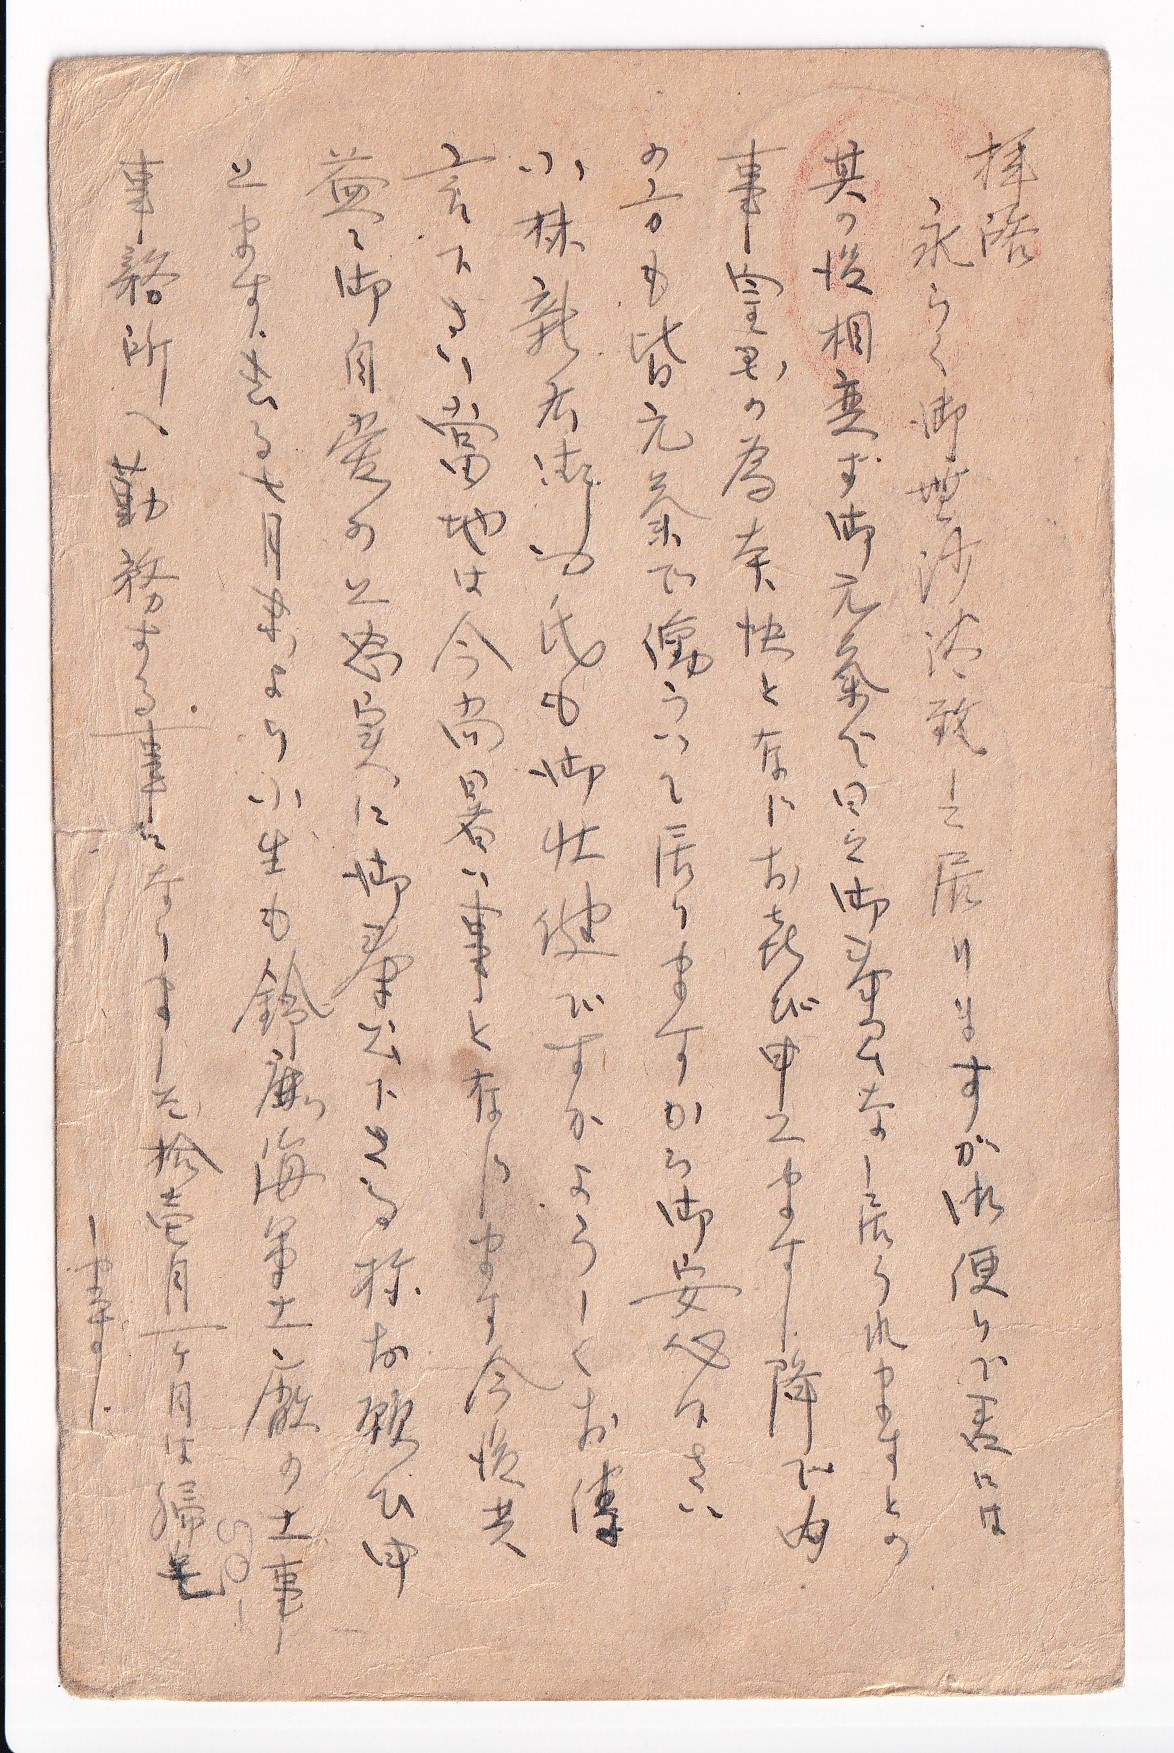 拝啓
永らく御無沙汰致して居りますが御便りで君には
其の後相変ず御元氣で日々御奉公なし居られますとの
事皇國の為奉快となにお喜び申上ます 降で内
の方も皆元氣で働らいて居りますから御安心下さい
小林新右衛門氏も御壮健ですかよろしくお傳
言下さい當地は今尚暑い事となります今後共
益々御自愛の上忠実に御奉公下さる様お願ひ申
上ます 去る七月末より小生も鈴鹿海軍工廠の工事
事務所へ勤務する事になりました拾壱月一ケ月は帰宅
します